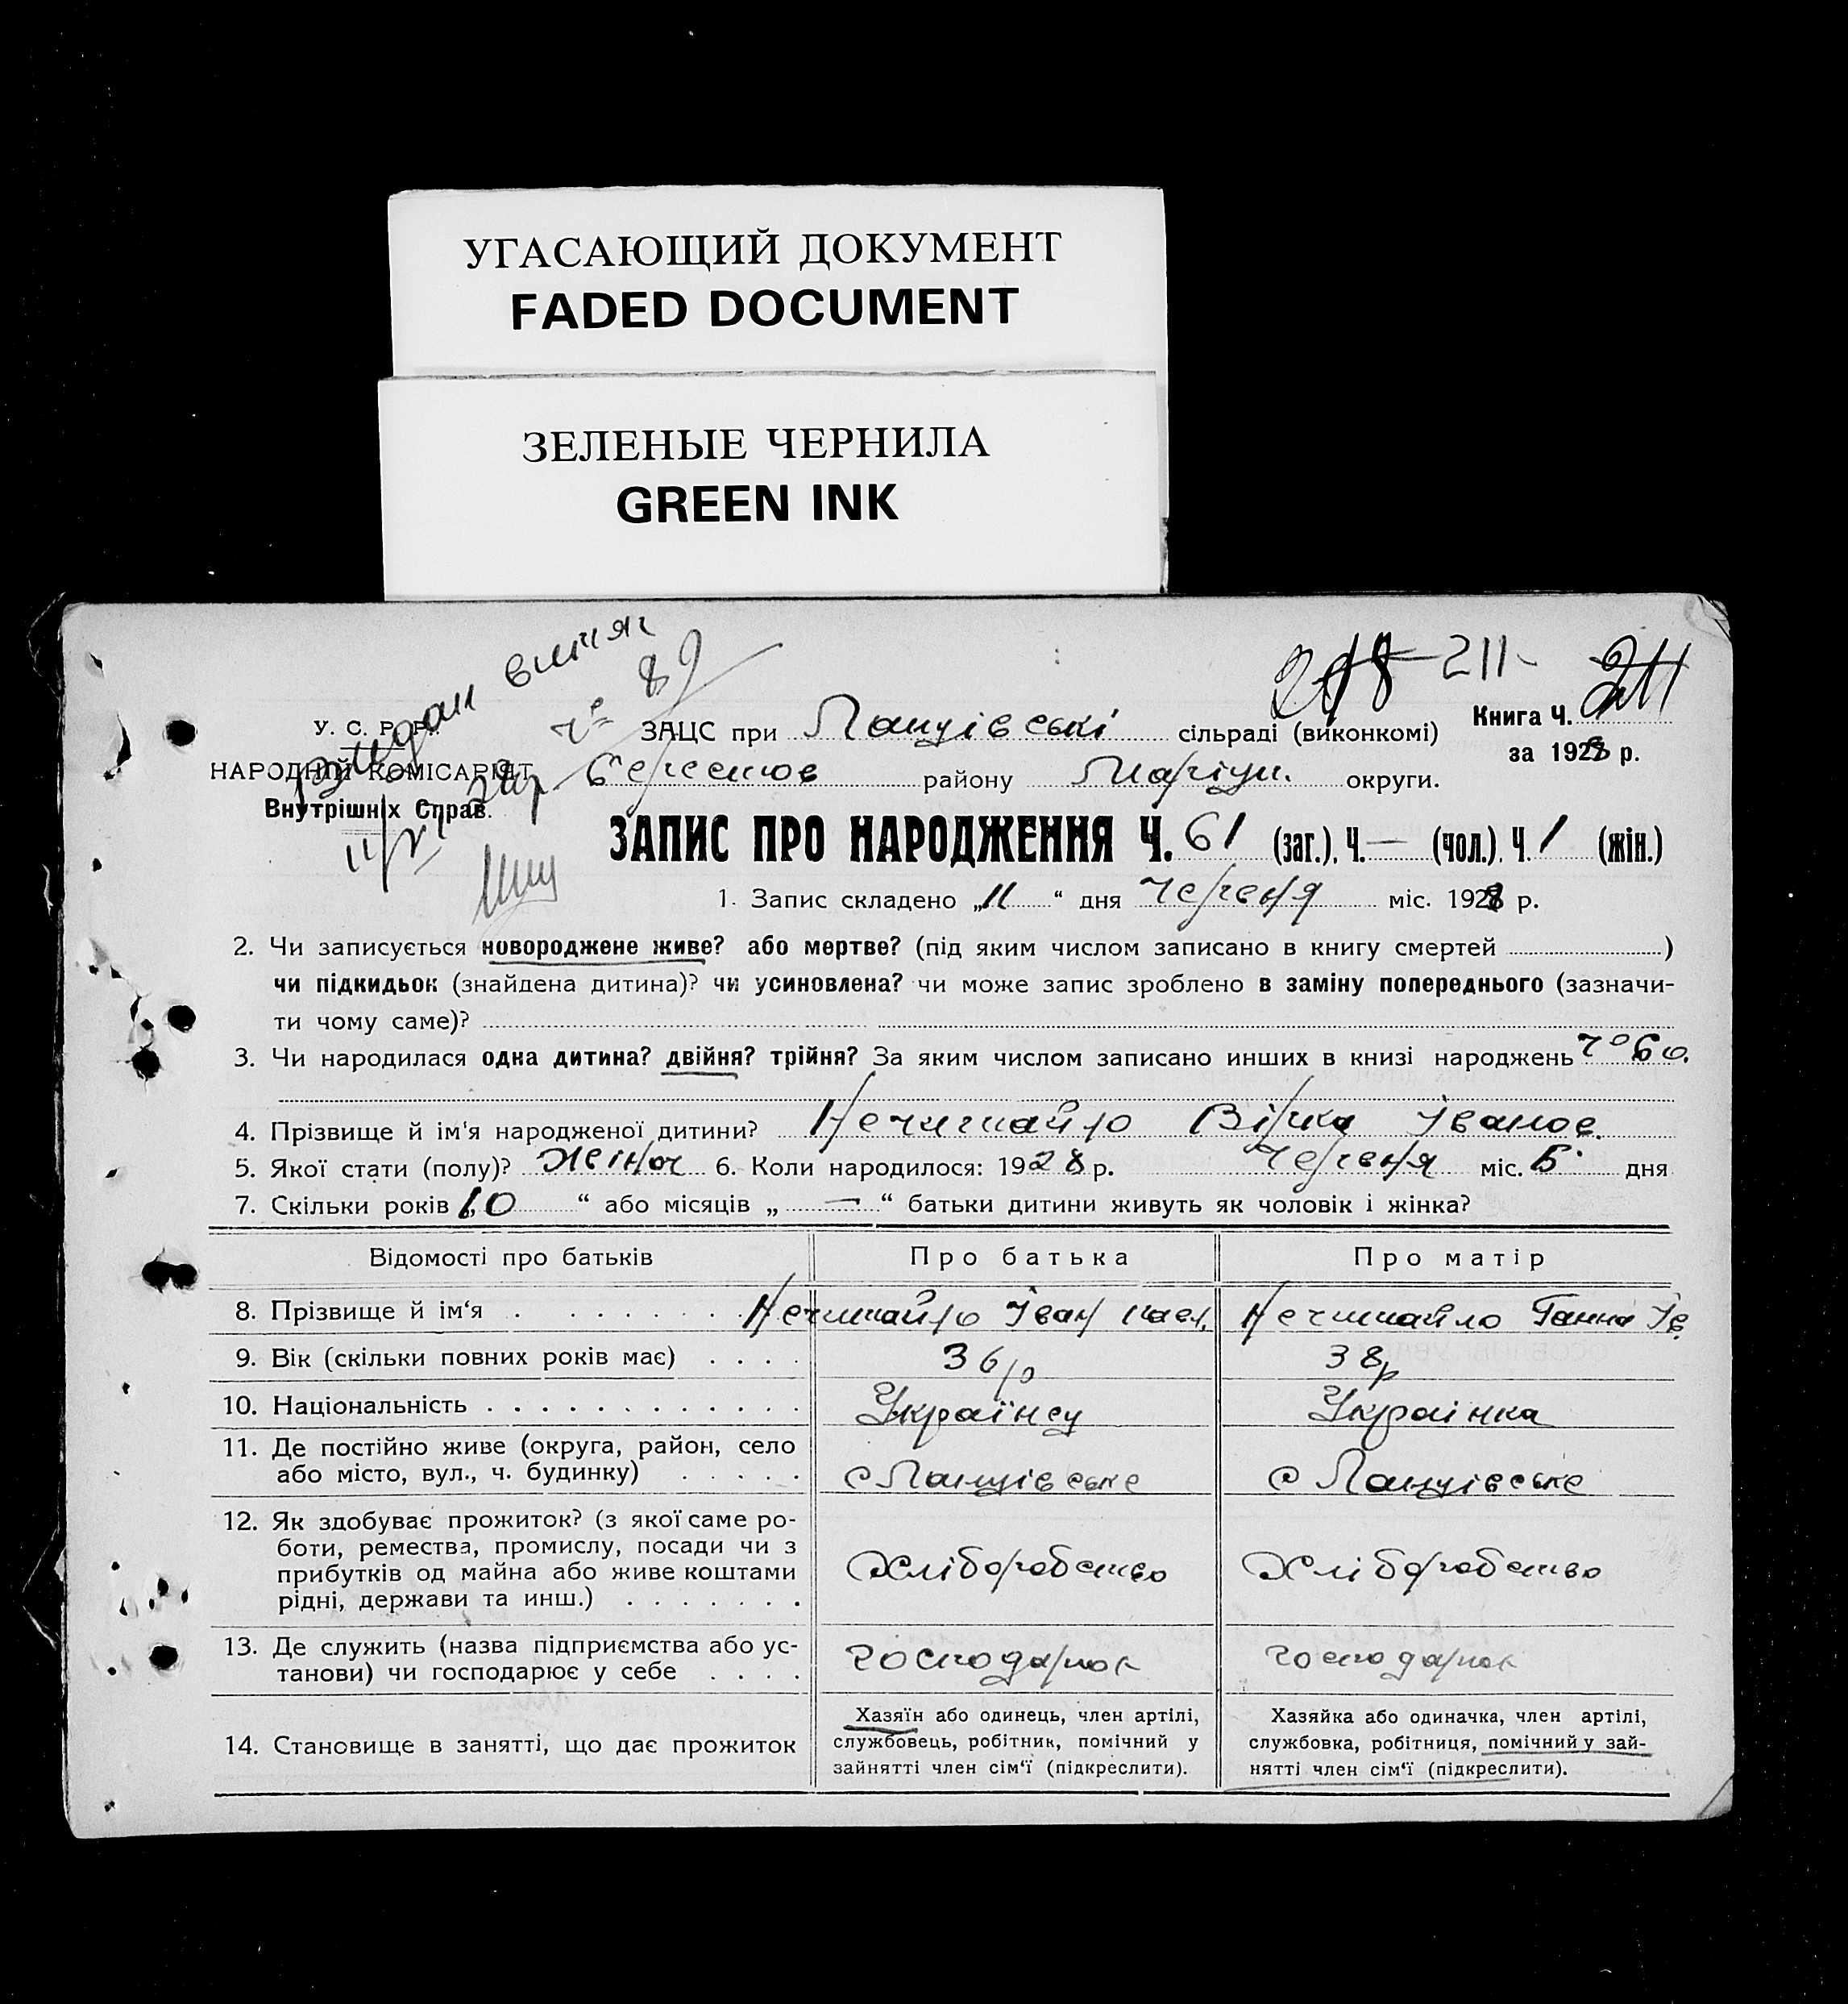 УГАСАЮЩИЙ ДОКУМЕНТ
FADED DOCUMENT
ЗЕЛЕНЫЕ ЧЕРНИЛА
GREEN INK
211
Книга Ч. 211
за 1928 р.
У. С. Р. Р.
НАРОДНІЙ КОМІСАРІЯТ
Внутрішніх Справ.
Видан витяг
ч° 89
ЗАЦС при Ланцівські сільраді (виконкомі)
Берестов району Маріуп. округи.
ЗАПИС ПРО НАРОДЖЕННЯ Ч. 61 (заг.), Ч. — (чол.), Ч. 1 (жін.)
1. Запис складено „11“ дня Червня міс. 1928 р.
2. Чи записується новороджене живе? або мертве? (під яким числом записано в книгу смертей )
чи підкидьок (знайдена дитина)? чи усиновлена? чи може запис зроблено в заміну попереднього (зазначи-
ти чому саме)?
3. Чи народилася одна дитина? двійня? трійня? За яким числом записано инших в книзі народжень ч° 60.
4. Прізвище й ім'я народженої дитини? Вірка Іванов.
5. Якої стати (полу)? Жіноч 6. Коли народилося: 1928 р. Червня міс. 5 дня
7. Скільки років „10“ або місяців „—“ батьки дитини живуть як чоловік і жінка?
Відомості про батьків Про батька Про матір
8. Прізвище й ім'я Нечипайло Іван Павл. Нечипайло Ганна Ів.
9. Вік (скільки повних років має) 36 р 38 р
10. Національність Українец Українка
11. Де постійно живе (округа, район, село
або місто, вул., ч. будинку) с Ланцівське с Ланцівське
12. Як здобуває прожиток? (з якої саме ро-
боти, ремества, промислу, посади чи з
прибутків од майна або живе коштами
рідні, держави та инш.) Хліборобство Хліборобство
13. Де служить (назва підприємства або ус-
танови) чи господарює у себе господарює господарює
14. Становище в занятті, що дає прожиток
Хазяїн або одинець, член артілі,
службовець, робітник, помічний у
зайнятті член сім'ї (підкреслити).
Хазяйка або одиначка, член артілі,
службовка, робітниця, помічний у зай-
нятті член сім'ї (підкреслити).